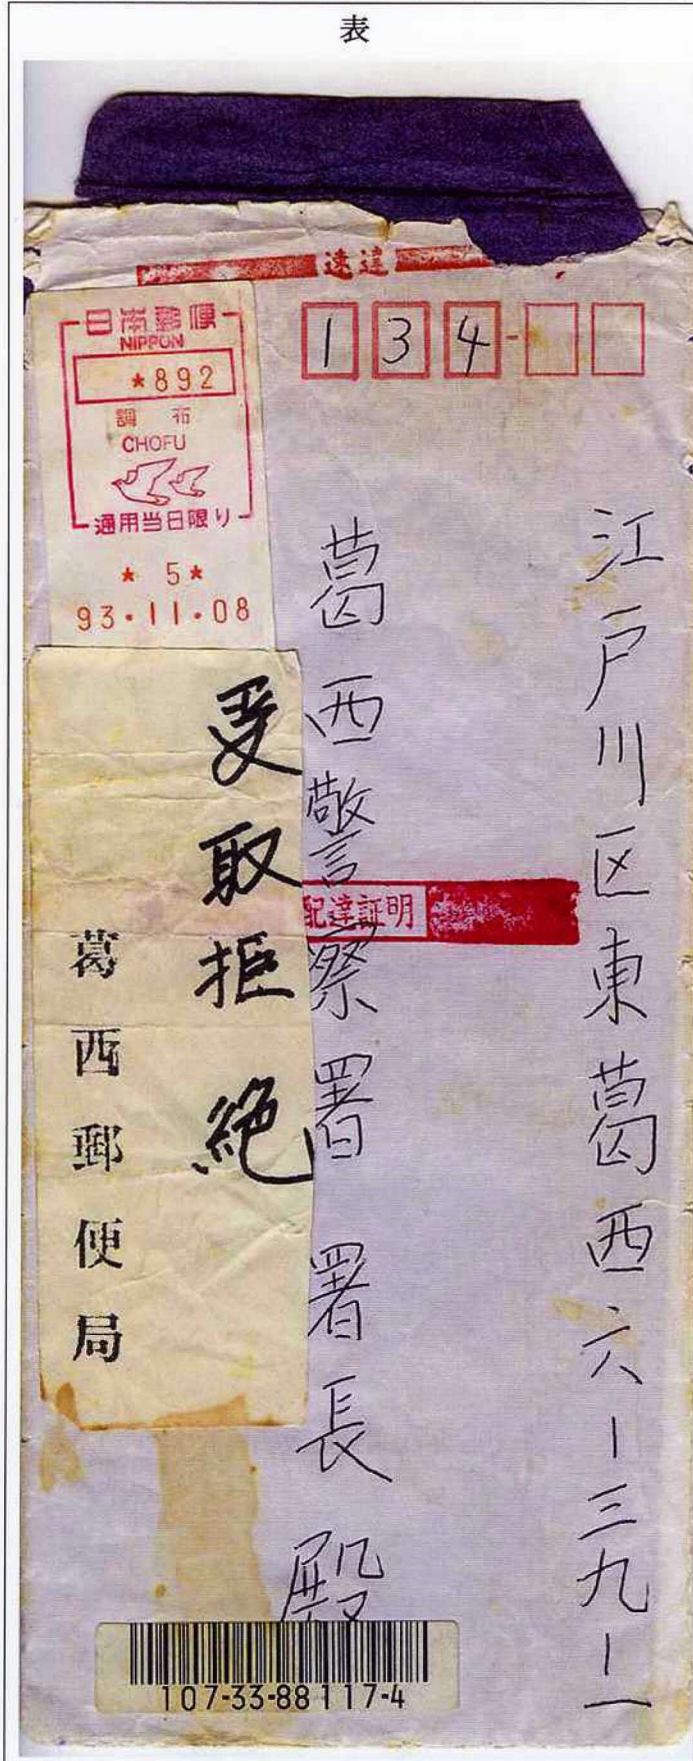 表
速達
日本郵便
NIPPON
*892
調布
CHOFU
通用当日限り
* 5*
93・11・08
134-
江戸川区東葛西六ー三九ー一
葛西警察署署長殿
配達証明
受取拒絶
葛西郵便局
107-33-88117-4